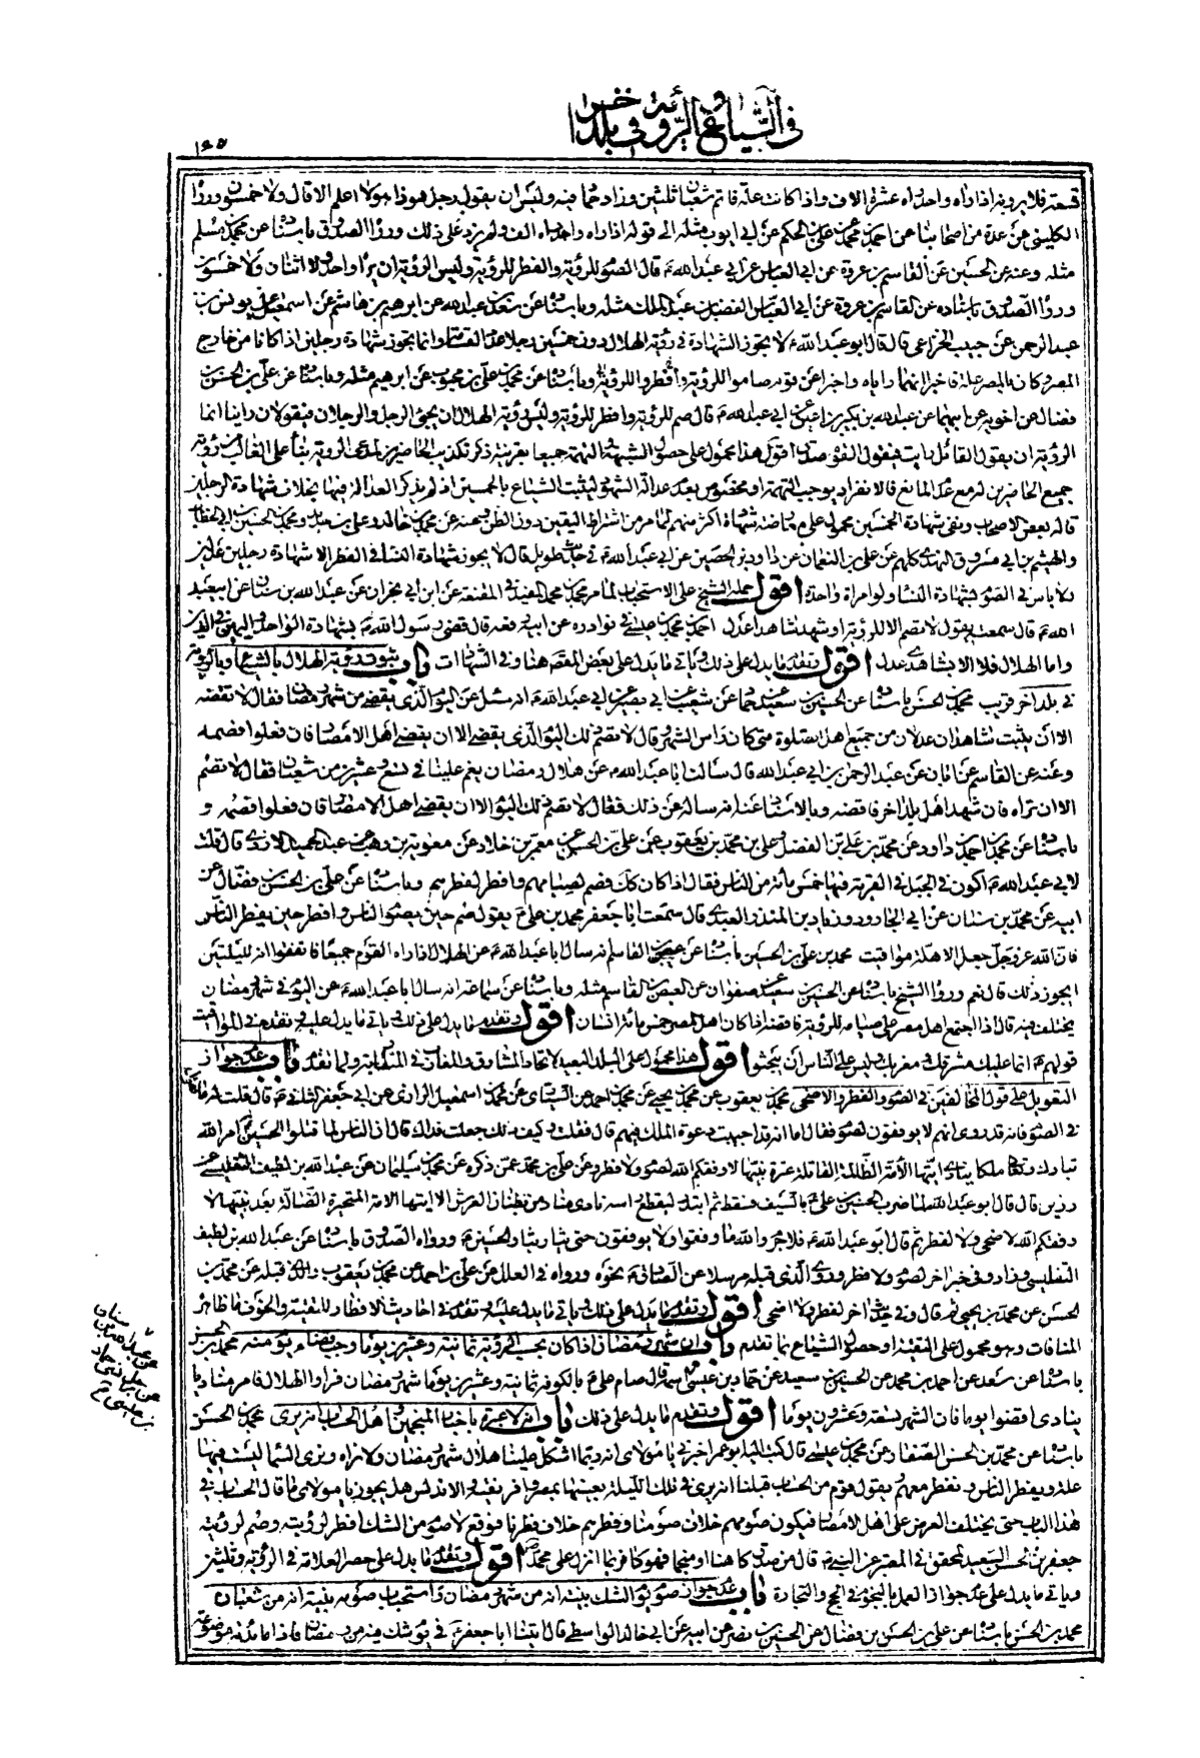 في الشياع والرؤية في بلد اخر
١٤٥
تسعة فلا يرونه اذا راه واحد راه عشرة الاف واذا كانت علة فاتم شعبان ثلثين وزاد حماد فيه وليس ان يقول رجل هو ذا هو لا اعلم الا قال ولا خمسون وروا
الكليني عن عدة من اصحابنا عن احمد بن محمد عن علي بن الحكم عن ابي ايوب مثله الى قوله اذا راه واحد راه الف ولم يزد على ذلك وروا الصدوق باسناده عن محمد بن مسلم
مثله وعنه عن الحسين عن القاسم بن عروة عن ابي العباس عن ابي عبد الله ع قال الصوم للرؤية والفطر للرؤية وليس الرؤية ان يراه واحد ولا اثنان ولا خمسون
وروا الصدوق باسناده عن القاسم بن عروة عن ابي العباس الفضل بن عبد الملك مثله وباسناده عن سعد بن عبد الله عن ابرهيم بن هاشم عن اسمعيل بن مرار عن يونس بن
عبد الرحمن عن حبيب الخزاعي قال قال ابو عبد الله ع لا تجوز الشهادة في رؤية الهلال دون خمسين رجلا عدد القسامة وانما تجوز شهادة رجلين اذا كانا من خارج
المصر وكان بالمصر علة فاخبرا انهما راياه واخبرا عن قوم صاموا للرؤية وافطروا للرؤية وباسناده عن محمد بن علي بن محبوب عن ابرهيم مثله وباسناده عن علي بن الحسن بن
فضال عن اخويه عن ابيهما عن عبد الله بن بكير بن اعين عن ابي عبد الله ع قال صم للرؤية وافطر للرؤية وليس رؤية الهلال ان يجئ الرجل والرجلان فيقولان راينا انما
الرؤية ان يقول القائل رايت فيقول القوم صدق اقول هذا محمول على حصول الشبهة
قاله بعض الاصحاب ونفى شهادة الخمسين محمول على
والهيثم بن ابي مسروق النهدي كلهم عن علي بن النعمان عن داود بن الحصين عن ابي عبد الله ع في حديث طويل قال لا يجوز شهادة النساء في الفطر الا شهادة رجلين عدلين
ولا باس في الصوم بشهادة النساء ولو امراة واحدة اقول حمله الشيخ على الاستحباب لما مر محمد بن محمد المفيد في المقنعة عن ابن ابي نجران عن عبد الله بن سنان عن ابي عبد
الله ع قال سمعته يقول لا تصم الا للرؤية او يشهد شاهدا عدل احمد بن محمد بن عيسى في نوادره عن ابيه رفعه قال قضى رسول الله ص بشهادة الواحد واليمين في الدين
واما الهلال فلا الا بشاهدي عدل اقول وتقدم ما يدل على ذلك وياتي ما يدل على بعض المقصود هنا وفي الشهادات باب ثبوت رؤية الهلال بالشياع وبالرؤية
في بلد اخر قريب محمد بن الحسن باسناده عن الحسين بن سعيد عن حماد عن شعيب عن ابي بصير عن ابي عبد الله ع انه سئل عن اليوم الذي يقضى من شهر رمضان فقال لا تقضه
الا ان يثبت شاهدان عدلان من جميع اهل الصلوة متى كان راس الشهر وقال لا تصم ذلك اليوم الذي يقضى الا ان يقضى اهل الامصار فان فعلوا فصمه
وعنه عن القاسم عن ابان عن عبد الرحمن بن ابي عبد الله قال سالت ابا عبد الله ع عن هلال رمضان يغم علينا في تسع وعشرين من شعبان فقال لا تصم
الا ان تراه فان شهد اهل بلد اخر فاقضه وبالاسناد عنه انه ساله عن ذلك فقال لا تصم ذلك اليوم الا ان يقضى اهل الامصار فان فعلوا فصمه و
باسناده عن محمد بن احمد بن داود عن محمد بن علي بن الفضل وعلي بن محمد بن يعقوب عن علي بن الحسن عن معمر بن خلاد عن معوية بن وهب عن عبد الحميد الازدي قال قلت
لابي عبد الله ع اكون في الجبل في القرية فيها خمس مائة من الناس فقال اذا كان كك فصم لصيامهم وافطر لفطرهم وباسناده عن علي بن الحسن بن فضال عن
ابيه عن محمد بن سنان عن ابي الجارود زياد بن المنذر العبدي قال سمعت ابا جعفر محمد بن علي ع يقول صم حين يصوم الناس وافطر حين يفطر الناس
فان الله عز وجل جعل الاهلة مواقيت محمد بن علي بن الحسين باسناده عن عيص بن القاسم انه سال ابا عبد الله ع عن الهلال اذا راه القوم جميعا فاتفقوا انه لليلتين
ايجوز ذلك قال نعم وروا الشيخ باسناده عن الحسين بن سعيد عن صفوان عن العيص بن القاسم مثله وباسناده عن سماعة انه سال ابا عبد الله ع عن اليوم في شهر رمضان
يختلف فيه قال اذا اجتمع اهل مصر على صيامه للرؤية فاقضه اذا كان اهل المصر خمس مائة انسان اقول وتقدم ما يدل على ذلك وياتي ما يدل عليه وتقدم في المواقيت
قولهم ع انما عليك مشرقك ومغربك وليس على الناس ان يبحثوا اقول هذا محمول على البلد البعيد لاتحاد المشارق والمغارب في المتقاربة ولما تقدم باب عدم جواز
التعويل على قول المخالفين في الصوم والفطر والاضحى محمد بن يعقوب عن محمد بن يحيى عن محمد بن احمد عن السياري عن محمد بن اسمعيل الرازي عن ابي جعفر الثاني ع قال قلت له ما تقول
في الصوم فانه قد روى انهم لا يوفقون لصوم فقال اما انه قد اجيبت دعوة الملك فيهم قال فقلت وكيف ذلك جعلت فداك قال ان الناس لما قتلوا الحسين ع امر الله
تبارك وتعالى ملكا ينادي ايتها الامة الظالمة القاتلة عترة نبيها لا وفقكم الله لصوم ولا فطر وعن علي بن محمد عمن ذكره عن محمد بن سليمان عن عبد الله بن لطيف التفليسي عن
رزين قال قال ابو عبد الله ع لما ضرب الحسين بن علي ع بالسيف فسقط ثم ابتدر ليقطع راسه نادى مناد من بطنان العرش الا ايتها الامة المتحيرة الضالة بعد نبيها لا
وفقكم الله لاضحى ولا لفطر ثم قال ابو عبد الله ع فلا جرم والله ما وفقوا ولا يوفقون حتى يثار بثار الحسين ع ورواه الصدوق باسناده عن عبد الله بن لطيف
التفليسي وزاد وفي خبر اخر لصوم ولا فطر وروى الذي قبله مرسلا عن الصادق ع نحوه ورواه في العلل عن علي بن احمد عن محمد بن يعقوب والذي قبله عن محمد بن
الحسن عن محمد بن يحيى نحوه قال وفي حديث اخر لفطر ولا اضحى اقول وتقدم ما يدل على ذلك وياتي ما يدل عليه وتقدم في احاديث الافطار للتقية والخوف ما ظاهره
المنافات وهو محمول على التقية او حصول الشياع لما تقدم باب ان شهر رمضان اذا كان بحسب الرؤية ثمانية وعشرين يوما وجب قضاء يوم منه محمد بن الحسن
باسناده عن سعد عن احمد بن محمد عن الحسين بن سعيد عن حماد بن عيسى قال صام علي ع بالكوفة ثمانية وعشرين يوما شهر رمضان فراوا الهلال فامر مناديا
ينادي اقضوا يوما فان الشهر تسعة وعشرون يوما اقول وتقدم ما يدل على ذلك باب انه لا عبرة باخبار المنجمين واهل الحساب انه يرى محمد بن الحسن
باسناده عن محمد بن الحسن الصفار عن محمد بن عيسى قال كتب اليه ابو عمر اخبرني يا مولاي انه ربما اشكل علينا هلال شهر رمضان ولا نراه ونرى السماء ليست فيها
علة ويفطر الناس ونفطر معهم ويقول قوم من الحساب قبلنا انه يرى في تلك الليلة بعينها بمصر وافريقية والاندلس هل يجوز يا مولاي ما قال الحساب في
هذا الباب حتى يختلف الفرض على اهل الامصار فيكون صومهم خلاف صومنا وفطرهم خلاف فطرنا فوقع لا صوم من الشك افطر لرؤيته وصم لرؤيته
جعفر بن الحسن بن السعيد المحقق في المعتبر عن النبي ص قال من صدق كاهنا او منجما فهو كافر بما انزل على محمد ص اقول وتقدم ما يدل على حصر العلامة في الرؤية وثلثين
وياتي ما يدل على عدم جواز العمل بالنجوم في الحج والتجارة باب عدم جواز صوم يوم الشك بنية انه من شهر رمضان واستحباب صومه بنية انه من شعبان
محمد بن الحسن باسناده عن علي بن الحسن بن فضال عن الحسين بن نصر عن ابيه عن ابي خالد الواسطي قال اتينا ابا جعفر ع في يوم شك فيه من رمضان فاذا مائدة موضوعة